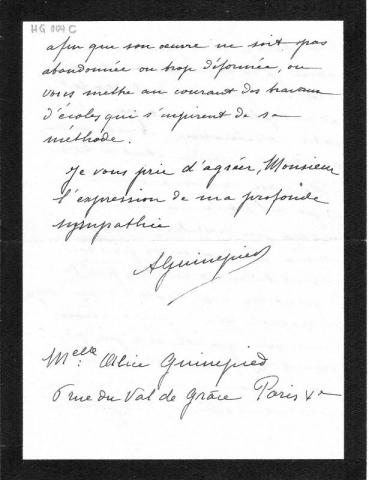 HG 104 C
afin que son œuvre ne soit pas
abandonnée ou trop déformée, ou
vous mettre au courant des travaux
d'écoles qui s'inspirent de sa
méthode.
Je vous prie d'agréer, Monsieur
l'expression de ma profonde
sympathie
AGuinepied
Melle Alice Guinepied
6 rue du Val de Grâce Paris